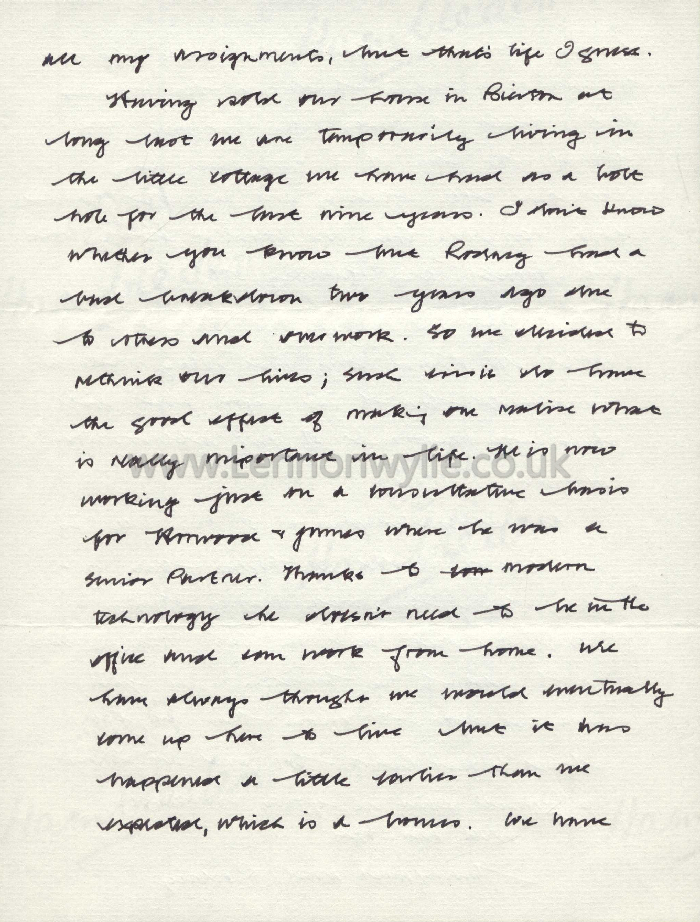 all my assignments, but that's life I guess.
Having sold our house in at
long last we are temporarily living in
the little cottage we have had as a bolt
hole for the last nine years. I don't know
whether you know but Rodney had a
bad breakdown two years ago due
to stress and overwork. So we decided to
rethink our lives; such crisis do have
the good effect of making one realise what
is really important in life. He is now
www.Lennonwylie.co.uk
working just on a consultative basis
for & James where he was a
Senior Partner. Thanks to modern
technology he doesn't need to be in the
office and can work from home. We
have always thought we would eventually
come up here to live but it has
happened a little earlier than we
expected, which is a bonus. We have